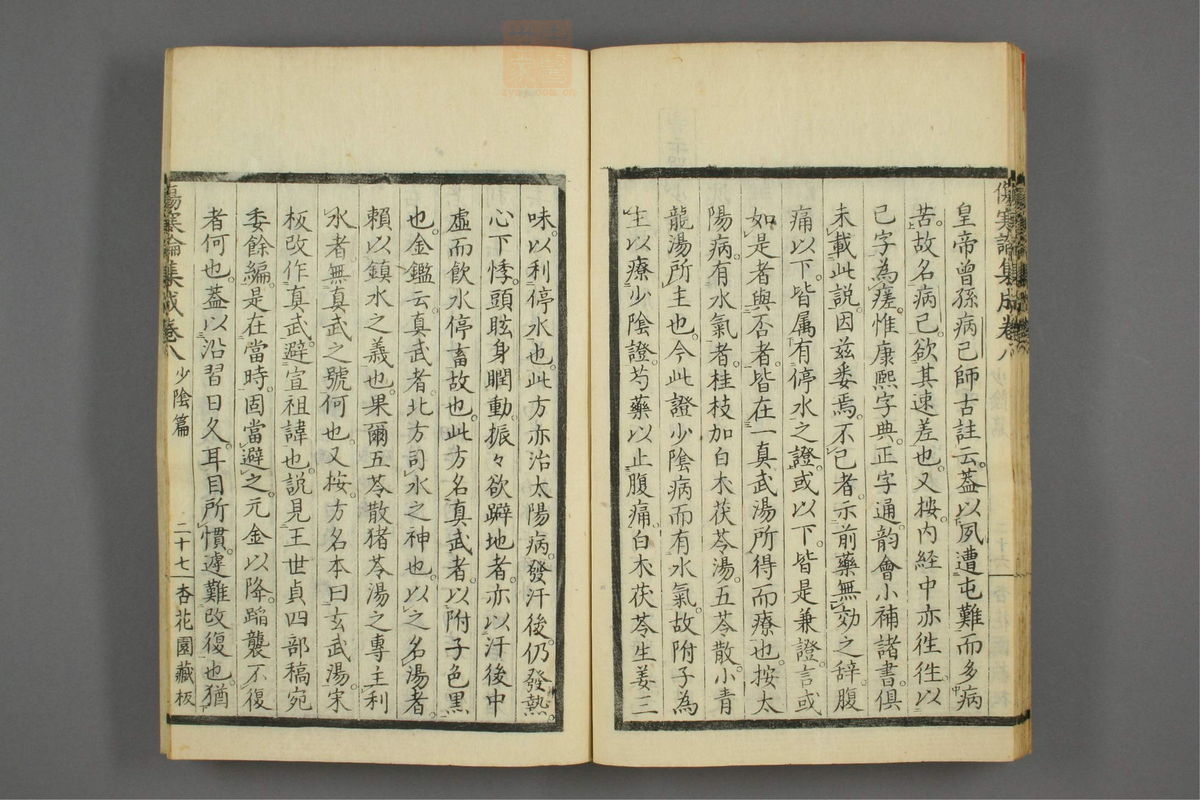 傷寒論集成卷八
皇帝曾孫病已師古註云蓋以夙遭屯難而多病
苦故名病已欲其速差也又按內経中亦徃徃以
已字為瘥惟康熙字典正字通韵會小補諸書俱
未載此說因玆委焉不已者示前藥無効之辞腹
痛以下皆属有停水之證或以下皆是兼證言或
如是者與否者皆在一真武湯所得而療也按太
陽病有水氣者桂枝加白朮茯苓湯五苓散小青
龍湯所主也今此證少陰病而有水氣故附子為
生以療少陰證芍藥以止腹痛白朮茯苓生姜三
味以利停水也此方亦治太陽病發汗後仍發熱
心下悸頭眩身瞤動振々欲擗地者亦以汗後中
虛而飲水停畜故也此方名真武者以附子色黑
也金鑑云真武者北方司水之神也以之名湯者
賴以鎮水之義也果爾五苓散猪苓湯之專主利
水者無真武之號何也又按方名本曰玄武湯宋
板改作真武避宣祖諱也說見王世貞四部稿宛
委餘編是在當時固當避之元金以降蹈襲不復
者何也蓋以沿習日久耳目所慣遽難改復也猶
傷寒論集成卷八 少陰篇 二十七 杏花園藏板